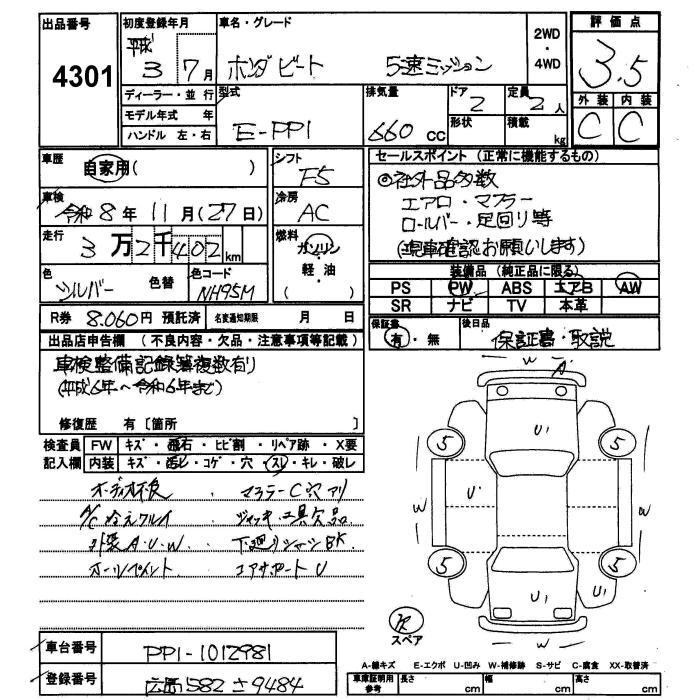 出品番号
4301
初度登録年月
平成 3年 7月
車名・グレード
ホンダ ビート 5速ミッション
2WD
・
4WD
評価点
3.5
外装 内装
C C
ディーラー・並行
モデル年式 年
ハンドル 左・右
型式
E-PP1
排気量
660 cc
ドア
2
形状
定員
2 人
積載
kg
車歴
自家用( )
シフト
F5
車検
令和 8年 11月(27日)
冷房
AC
走行
3万2千402km
燃料
ガソリン
軽・油
( )
色
シルバー
色替
色コード
NH95M
セールスポイント(正常に機能するもの)
◎社外品多数
エアロ・マフラー
ロールバー・足回り等
(現車確認お願いします)
装備品(純正品に限る)
PS PW ABS エアB AW
SR ナビ TV 本革
R券 8.060円 預託済
名変通知期限 月 日
保証書
有・無
後日品
保証書・取説
出品店申告欄(不良内容・欠品・注意事項等記載)
車検整備記録簿複数有り
(平成6年〜令和6年まで)
修復歴 有〔箇所 〕
検査員 FW キズ・飛石・ヒビ割・リペア跡・X要
記入欄 内装 キズ・汚レ・コゲ・穴・スレ・キレ・破レ
マフラーC穴アリ
A/C冷えワルイ ジャッキ、工具欠品
外装A・U・W 下廻りシャーシBK
オールペイント エアサポートU
W
A
U1
5 5
W U' W
5 5
U1 U1
W
スペア
A-線キズ E-エクボ U-凹み W-補修跡 S-サビ C-腐食 XX-取替済
車台番号
PP1-1012981
登録番号
広島582さ9484
車庫証明用
参考
長さ cm
幅 cm
高さ cm